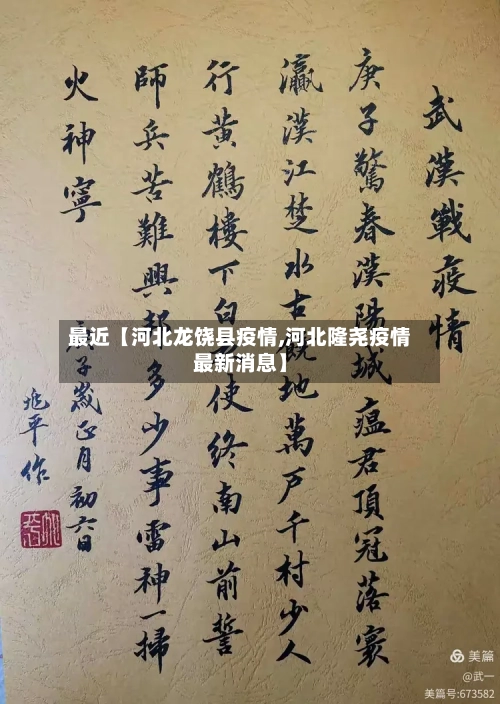 武漢戰疫情
庚子驚春漢陽城瘟君頂冠落寰
瀛漢江楚水古觀地萬户千村少人
行黃鶴樓下白使终南山前誓
師兵苦難興多少事雷神一掃
火神寧
庚子歲正月初六日
兆平作
最近【河北龙饶县疫情,河北隆尧疫情
最新消息】
美篇
@武一
美篇号:673582